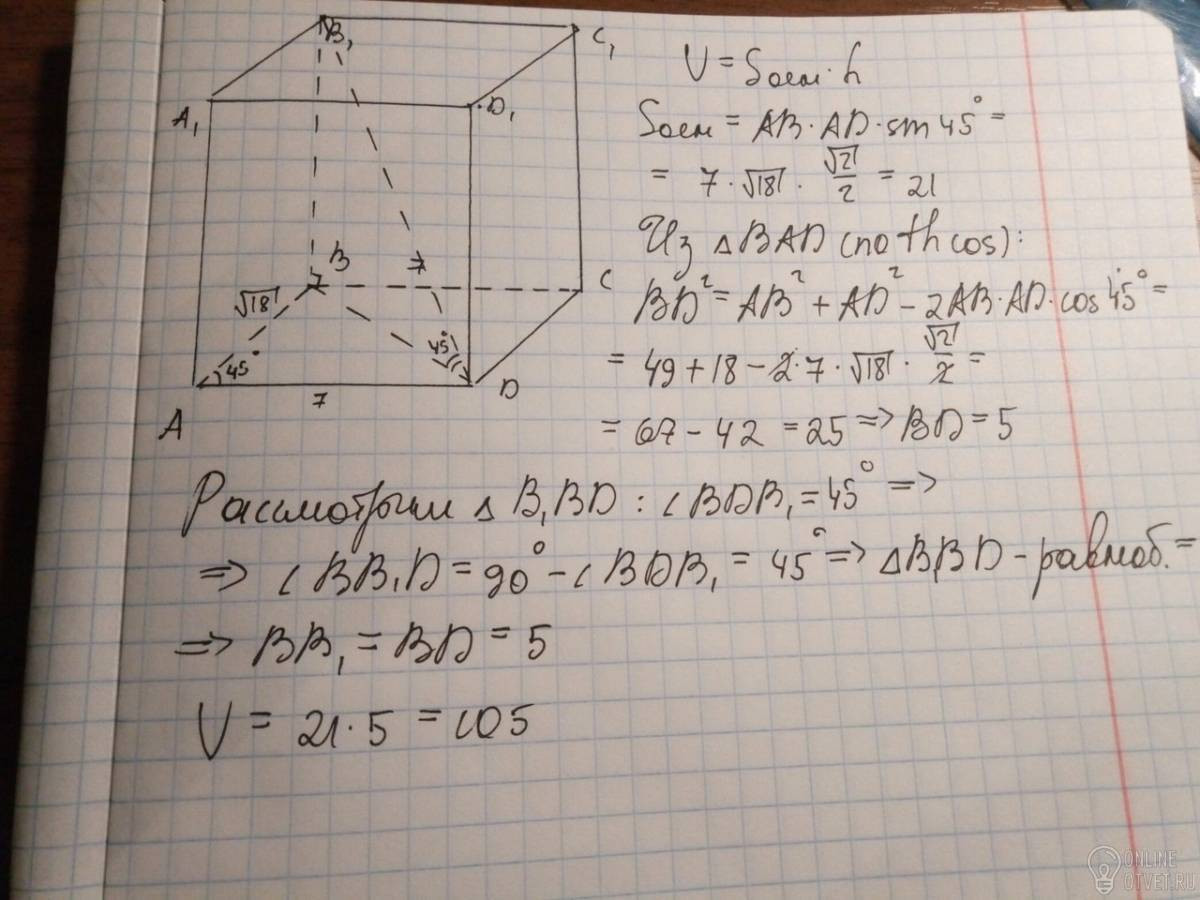 B₁
C₁
A₁
D₁
B
7
C
√18
45°
45°
A
7
D
V = Sосн · h
Sосн = AB · AD · sin 45° =
= 7 · √18 · √2/2 = 21
Из △BAD (по th cos):
BD² = AB² + AD² − 2AB · AD · cos 45° =
= 49 + 18 − 2 · 7 · √18 · √2/2 =
= 67 − 42 = 25 => BD = 5
Рассмотрим △ B₁BD : ∠ BDB₁ = 45° =>
=> ∠ BB₁D = 90° − ∠ BDB₁ = 45° => △B₁BD - равноб. =
=> BB₁ = BD = 5
V = 21 · 5 = 105
ONLINE
OTVET.RU